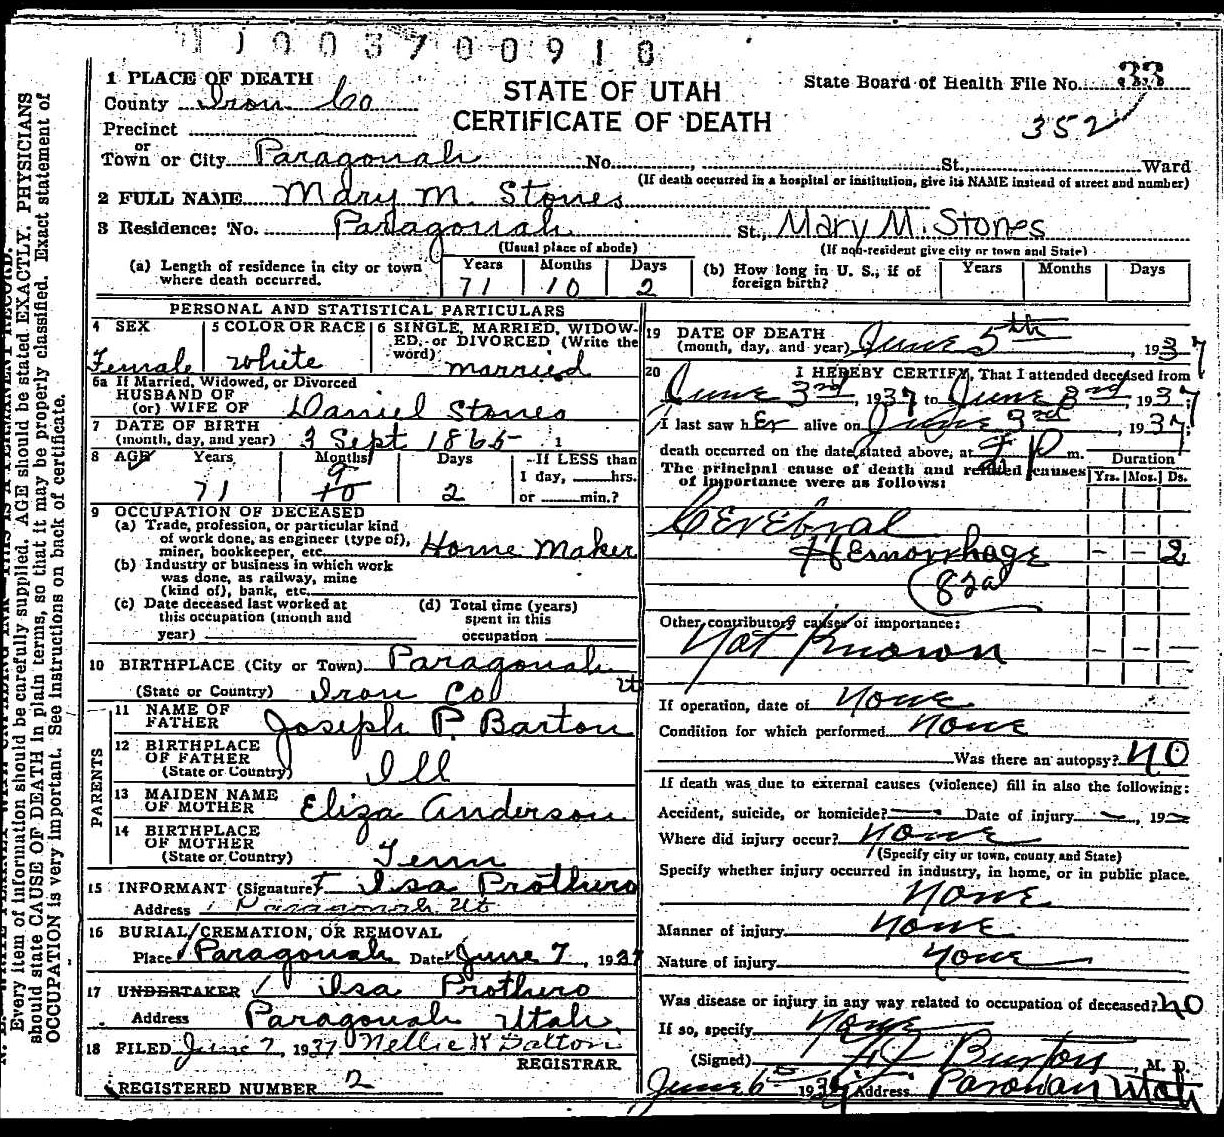 1003700910
1 PLACE OF DEATH
County Iron Co
Precinct
or
Town or City Paragonah No. , St., Ward
(If death occurred in a hospital or institution, give its NAME instead of street and number)
STATE OF UTAH
CERTIFICATE OF DEATH
State Board of Health File No. 33
352
2 FULL NAME Mary M. Stones
3 Residence: No. Paragonah St., Mary M. Stones
(Usual place of abode) (If non-resident give city or town and State)
(a) Length of residence in city or town where death occurred. Years 71 Months 10 Days 2
(b) How long in U. S., if of foreign birth? Years Months Days
PERSONAL AND STATISTICAL PARTICULARS
4 SEX Female
5 COLOR OR RACE white
6 SINGLE, MARRIED, WIDOWED, or DIVORCED (Write the word) married
6a If Married, Widowed, or Divorced
HUSBAND OF
(or) WIFE OF Daniel Stones
7 DATE OF BIRTH
(month, day, and year) 3 Sept 1865 1
8 AGE Years 71 Months 9 10 Days 2
If LESS than
1 day, hrs.
or min.?
9 OCCUPATION OF DECEASED
(a) Trade, profession, or particular kind
of work done, as engineer (type of),
miner, bookkeeper, etc. Home Maker
(b) Industry or business in which work
was done, as railway, mine
(kind of), bank, etc.
(c) Date deceased last worked at
this occupation (month and
year)
(d) Total time (years)
spent in this
occupation
10 BIRTHPLACE (City or Town) Paragonah
(State or Country) Iron Co Ut
PARENTS
11 NAME OF FATHER Joseph P. Barton
12 BIRTHPLACE OF FATHER
(State or Country) Ill
13 MAIDEN NAME OF MOTHER Eliza Anderson
14 BIRTHPLACE OF MOTHER
(State or Country) Tenn
15 INFORMANT (Signature) Ilsa Prothero
Address Paragonah Ut
16 BURIAL, CREMATION, OR REMOVAL
Place Paragonah Date June 7, 1937
17 UNDERTAKER Ilsa Prothero
Address Paragonah Utah
18 FILED June 7, 1937 Nellie K Dalton
REGISTRAR
REGISTERED NUMBER 2
19 DATE OF DEATH
(month, day, and year) June 5th, 1937
20 I HEREBY CERTIFY, That I attended deceased from
June 3rd, 1937 to June 3rd, 1937
I last saw her alive on June 3rd, 1937;
death occurred on the date stated above, at 9 P m.
The principal cause of death and related causes
of importance were as follows:
Duration
Yrs. Mos. Ds.
Cerebral
Hemorrhage - - 2
82a
Other contributory causes of importance:
Not Known - - -
If operation, date of None
Condition for which performed None
Was there an autopsy? NO
If death was due to external causes (violence) fill in also the following:
Accident, suicide, or homicide? Date of injury , 19
Where did injury occur? None
(Specify city or town, county and State)
Specify whether injury occurred in industry, in home, or in public place.
None
Manner of injury None
Nature of injury None
Was disease or injury in any way related to occupation of deceased? NO
If so, specify None
(Signed) Burton M. D.
June 6 193 Address Parowan Utah
Every item of information should be carefully supplied. AGE should be stated EXACTLY. PHYSICIANS
should state CAUSE OF DEATH in plain terms, so that it may be properly classified. Exact statement of
OCCUPATION is very important. See instructions on back of certificate.